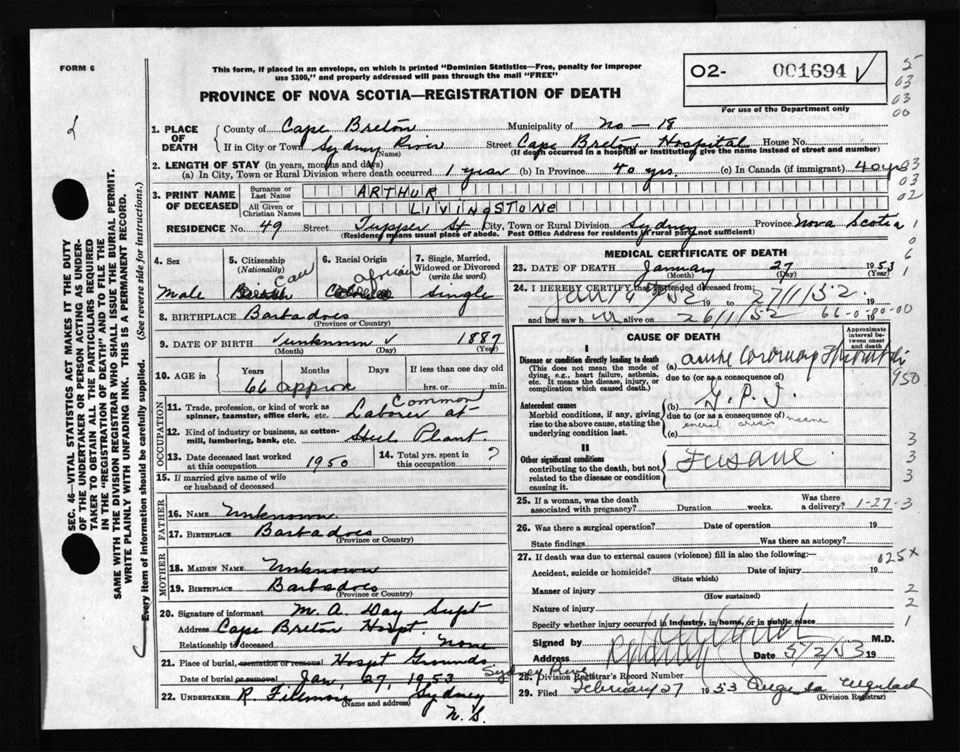 FORM 6
This form, if placed in an envelope, on which is printed "Dominion Statistics—Free, penalty for improper
use $300," and properly addressed will pass through the mail "FREE"
02- 001694 ✓
PROVINCE OF NOVA SCOTIA—REGISTRATION OF DEATH
For use of the Department only
5
03
03
00
1. PLACE OF DEATH
County of Cape Breton Municipality of No - 18
If in City or Town Sydney River Street Cape Breton Hospital House No.
(Name) (If death occurred in a hospital or institution, give the name instead of street and number)
2. LENGTH OF STAY (in years, months and days)
(a) In City, Town or Rural Division where death occurred 1 year (b) In Province 40 yrs. (c) In Canada (if immigrant) 40 yrs
03
03
02
3. PRINT NAME OF DECEASED
Surname or Last Name ARTHUR
All Given or Christian Names LIVINGSTONE
RESIDENCE No. 49 Street Tupper St City, Town or Rural Division Sydney Province Nova Scotia
(Residence means usual place of abode. Post Office Address for residents of rural parts not sufficient)
1
0
6
1
4. Sex Male
5. Citizenship (Nationality) Can
6. Racial Origin African
7. Single, Married, Widowed or Divorced (write the word) Single
8. BIRTHPLACE Barbadoes
(Province or Country)
9. DATE OF BIRTH unknown 1887
(Month) (Day) (Year)
10. AGE in Years Months Days If less than one day old
66 approx hrs. or min.
OCCUPATION
11. Trade, profession, or kind of work as spinner, teamster, office clerk, etc. Common Laborer at
12. Kind of industry or business, as cotton-mill, lumbering, bank, etc. Steel Plant.
13. Date deceased last worked at this occupation 1950
14. Total yrs. spent in this occupation ?
15. If married give name of wife or husband of deceased
FATHER
16. NAME Unknown
17. BIRTHPLACE Barbadoes
(Province or Country)
MOTHER
18. MAIDEN NAME Unknown
19. BIRTHPLACE Barbadoes
(Province or Country)
20. Signature of informant M. A. Day Supt
Address Cape Breton Hospt.
Relationship to deceased None
21. Place of burial, cremation or removal Hospt Grounds Sydney River
Date of burial or removal Jan, 27, 1953
22. UNDERTAKER R. Fillmore Sydney
(Name and address) N. S.
MEDICAL CERTIFICATE OF DEATH
23. DATE OF DEATH January 27 1953
(Month) (Day) (Year)
24. I HEREBY CERTIFY that I attended deceased from:
Jan 19 to 27/1/52.
and last saw h im alive on 26/1/52 66-0-00-00
CAUSE OF DEATH
Approximate interval between onset and death
I
Disease or condition directly leading to death
(This does not mean the mode of dying, e.g., heart failure, asthenia, etc. It means the disease, injury, or complication which caused death.)
(a) acute coronary Thrombosis
due to (or as a consequence of)
950
Antecedent causes
Morbid conditions, if any, giving rise to the above cause, stating the underlying condition last.
(b) G.P.I.
due to (or as a consequence of)
(c)
3
II
Other significant conditions
contributing to the death, but not related to the disease or condition causing it.
3
3
25. If a woman, was the death associated with pregnancy? Duration weeks. Was there a delivery?
1-27-3
26. Was there a surgical operation? Date of operation 19
State findings Was there an autopsy?
27. If death was due to external causes (violence) fill in also the following:
025 x
Accident, suicide or homicide? Date of injury 19
(State which)
Manner of injury 2
(How sustained)
Nature of injury 2
Specify whether injury occurred in industry, in home, or in public place 1
Signed by M.D.
Address 5/2/53 19
28. Division Registrar's Record Number
29. Filed February 27 1953
(Division Registrar)
SEC. 46—VITAL STATISTICS ACT MAKES IT THE DUTY
OF THE UNDERTAKER OR PERSON ACTING AS UNDER-
TAKER TO OBTAIN ALL THE PARTICULARS REQUIRED
IN THE "REGISTRATION OF DEATH" AND TO FILE THE
SAME WITH THE DIVISION REGISTRAR WHO SHALL ISSUE THE BURIAL PERMIT.
WRITE PLAINLY WITH UNFADING INK. THIS IS A PERMANENT RECORD.
Every item of information should be carefully supplied. (See reverse side for instructions.)